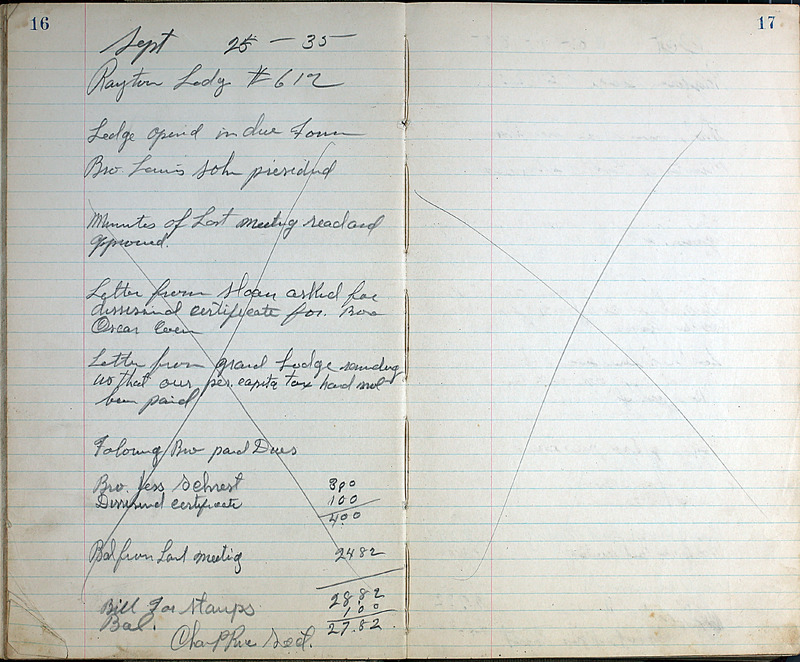 16
Sept 25 - 35
Rayton Lodg # 612
Lodge opend in due Form
Bro. Louis John presided
Minutes of Last meetig read and
approved.
Letter from Sloan asked for
dissisind certificate for. Bro
Oscar
Letter from grand Lodge
us that our per. capita tax had not
been paid
Folowing Bro paid Dues
Bro. Jess Schrest 300
Dissisind certificate 100
400
Bal from Last meetig 2482
2882
Bill For Stamps 100
Bal. 27.82
Sect.
17